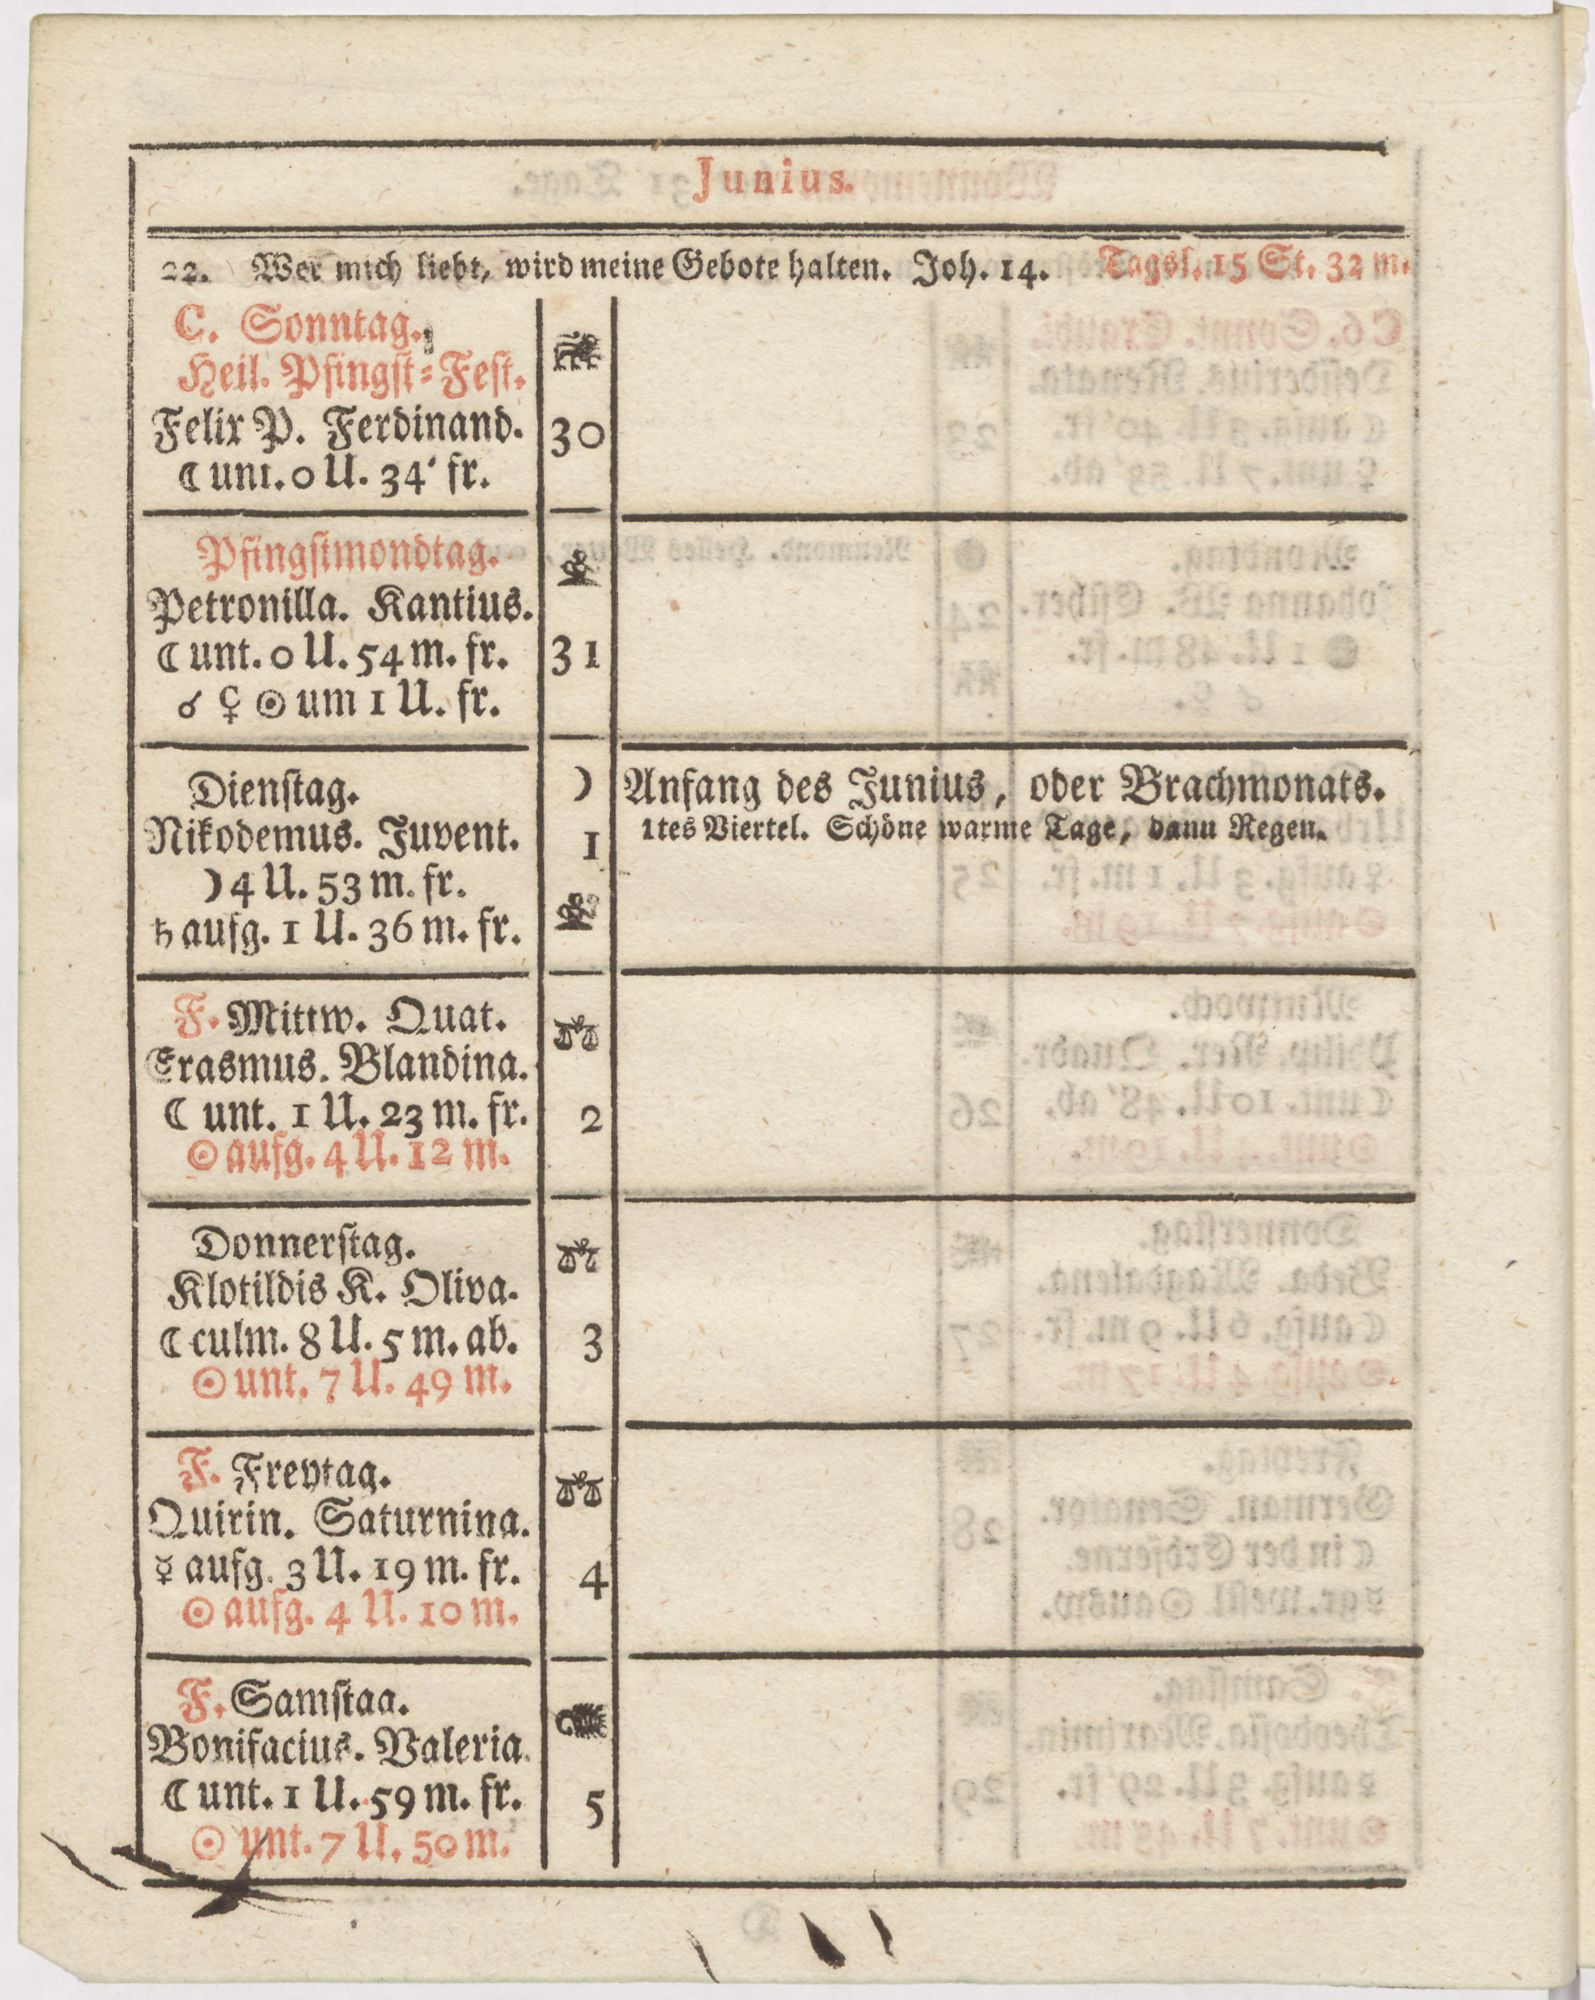 Junius.
22. Wer mich liebt, wird meine Gebote halten. Joh. 14. Tagsl. 15 St. 32 m.
C. Sonntag.
Heil. Pfingst=Fest.
Felix P. Ferdinand. 30
☾ unt. 0 U. 34' fr.
Pfingstmondtag.
Petronilla. Kantius.
☾ unt. 0 U. 54 m. fr. 31
☌ ♀ ☉ um 1 U. fr.
Dienstag. ☽ Anfang des Junius, oder Brachmonats.
Nikodemus. Juvent. 1 1tes Viertel. Schöne warme Tage, dann Regen.
☽ 4 U. 53 m. fr.
♄ aufg. 1 U. 36 m. fr.
F. Mittw. Quat.
Erasmus. Blandina.
☾ unt. 1 U. 23 m. fr. 2
☉ aufg. 4 U. 12 m.
Donnerstag.
Klotildis K. Oliva.
☾ culm. 8 U. 5 m. ab. 3
☉ unt. 7 U. 49 m.
F. Freytag.
Quirin. Saturnina.
☿ aufg. 3 U. 19 m. fr. 4
☉ aufg. 4 U. 10 m.
F. Samstag.
Bonifacius. Valeria.
☾ unt. 1 U. 59 m. fr. 5
☉ unt. 7 U. 50 m.